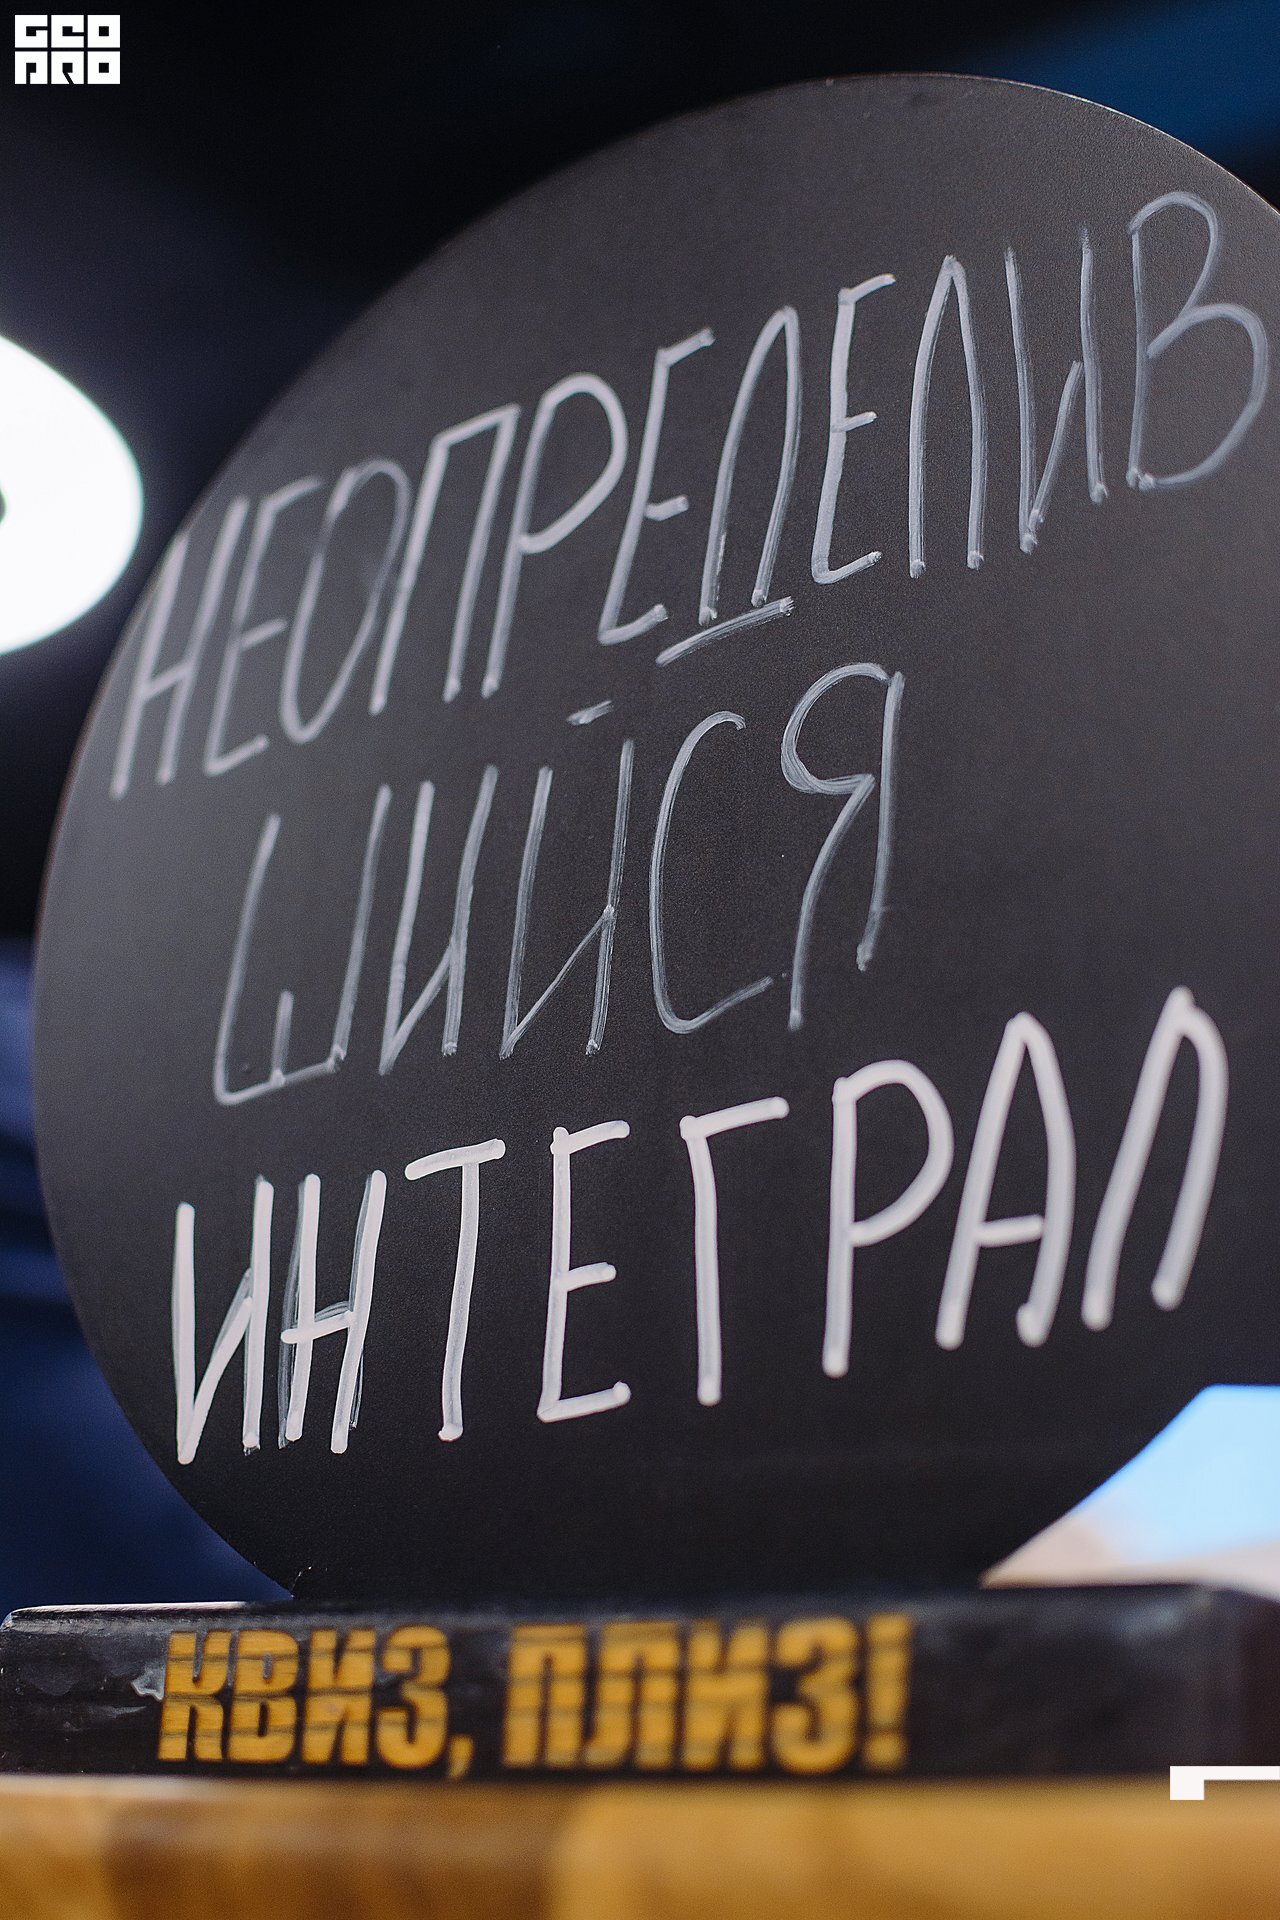 GEO
PRO
НЕОПРЕДЕЛИВ
ШИЙСЯ
ИНТЕГРАЛ
КВИЗ, ПЛИЗ!